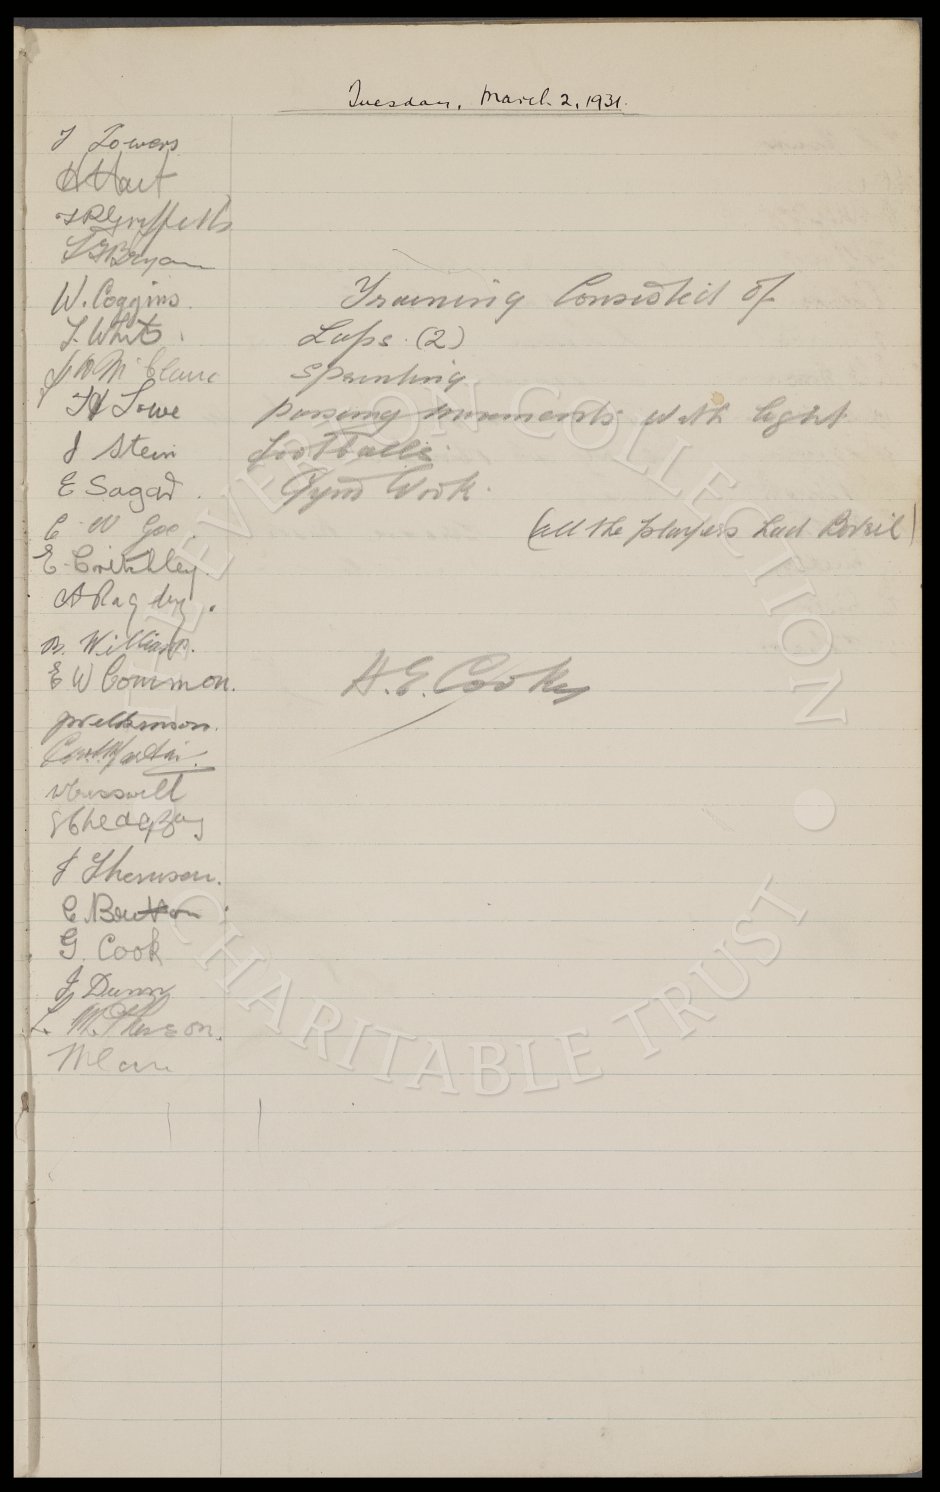 Tuesday, March 2, 1931.
J Towers
H Hart
T P Griffiths
L G Bryan
W. Coggins
T. White
J A McClure
H Lowe
J Stein
E Sagar
C W Gee
E. Critchley
A Rag
B. Williams
E W Common.
J Thomson.
G. Cook
J Dunn
L. McPherson.
Training Consisted of
Laps. (2)
Sprinting
passing movements with light
footballs
Gym Work.
(all the players had Bovril)
H.E. Cooke
THE EVERTON COLLECTION
CHARITABLE TRUST